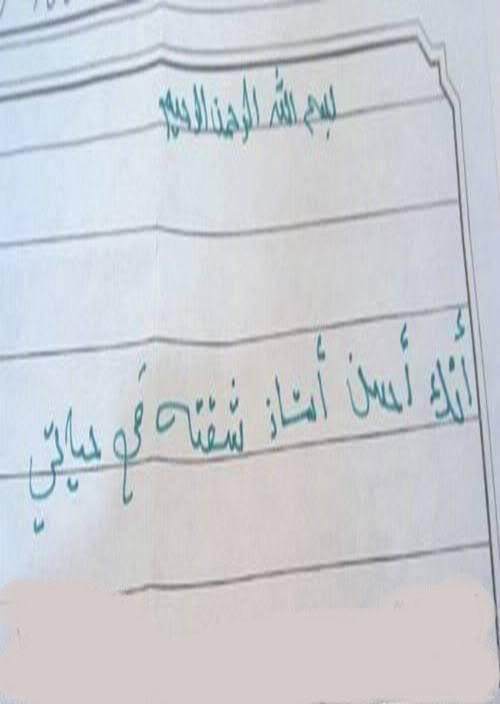 بسم الله الرحمن الرحيم
أنك أحسن أستاذ شفته في حياتي